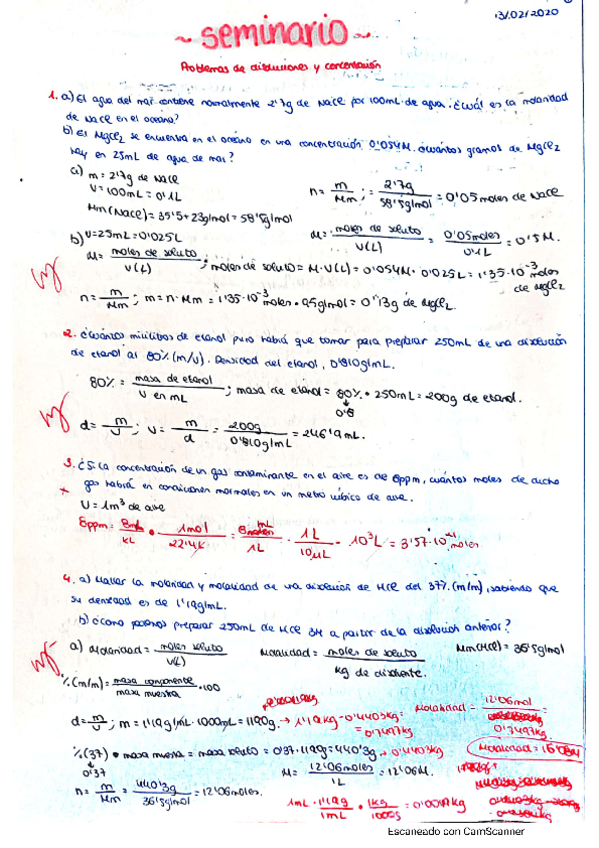 13/02/2020
~ seminario ~
Problemas de disoluciones y concentración
1. a) El agua del mar contiene normalmente 2'7g de NaCl por 100mL de agua. ¿Cuál es la molaridad
de NaCl en el océano?
b) El MgCl2 se encuentra en el océano en una concentración 0'054M. ¿Cuántos gramos de MgCl2
hay en 25mL de agua de mar?
a) m = 2'7g de NaCl
V = 100mL = 0'1L
Mm(NaCl) = 35'5 + 23g/mol = 58'5g/mol
n = m/Mm ; = 2'7g / 58'5g/mol = 0'05 moles de NaCl
M = moles de soluto / V(L) = 0'05moles / 0'1L = 0'5M.
b) V = 25mL = 0'025L
M = moles de soluto / V(L) ; moles de soluto = M·V(L) = 0'054M · 0'025L = 1'35·10⁻³ moles de MgCl2
n = m/Mm ; m = n·Mm = 1'35·10⁻³ moles · 95g/mol = 0'13g de MgCl2.
2. ¿Cuántos mililitros de etanol puro habrá que tomar para preparar 250mL de una disolución
de etanol al 80% (m/v). Densidad del etanol, 0'810g/mL.
80% = masa de etanol / V en mL ; masa de etanol = 80% · 250mL = 200g de etanol.
0'8
d = m/V ; V = m/d = 200g / 0'810g/mL = 246'9mL.
3. ¿Si la concentración de un gas contaminante en el aire es de 8ppm, cuántos moles de dicho
gas habrá en condiciones normales en un metro cúbico de aire.
V = 1m³ de aire
8ppm = · 1mol / 22'4 = 8 / 1L · 1L / · 10³L = 3'57·10⁻⁴ moles
4. a) Hallar la molaridad y molalidad de una disolución de HCl del 37% (m/m), sabiendo que
su densidad es de 1'19g/mL.
b) ¿Cómo podemos preparar 250mL de HCl 3M a partir de la disolución anterior?
a) Molaridad = moles soluto / V(L)
Molalidad = moles de soluto / kg de disolvente.
Mm(HCl) = 36'5g/mol
%(m/m) = masa componente / masa muestra · 100
d = m/V ; m = 1'19g/mL · 1000mL = 1190g. → 1'19kg - 0'4403kg = 0'7497kg
Molalidad = 12'06mol / 0'7497kg
%(37) · masa muestra = masa soluto = 0'37·1190g = 440'3g → 0'4403kg
0'37
Molalidad = 16'08m
n = m/Mm = 440'3g / 36'5g/mol = 12'06moles.
M = 12'06moles / 1L = 12'06M.
1mL · 1'19g / 1mL · 1kg / 1000g = 0'00119kg
Escaneado con CamScanner